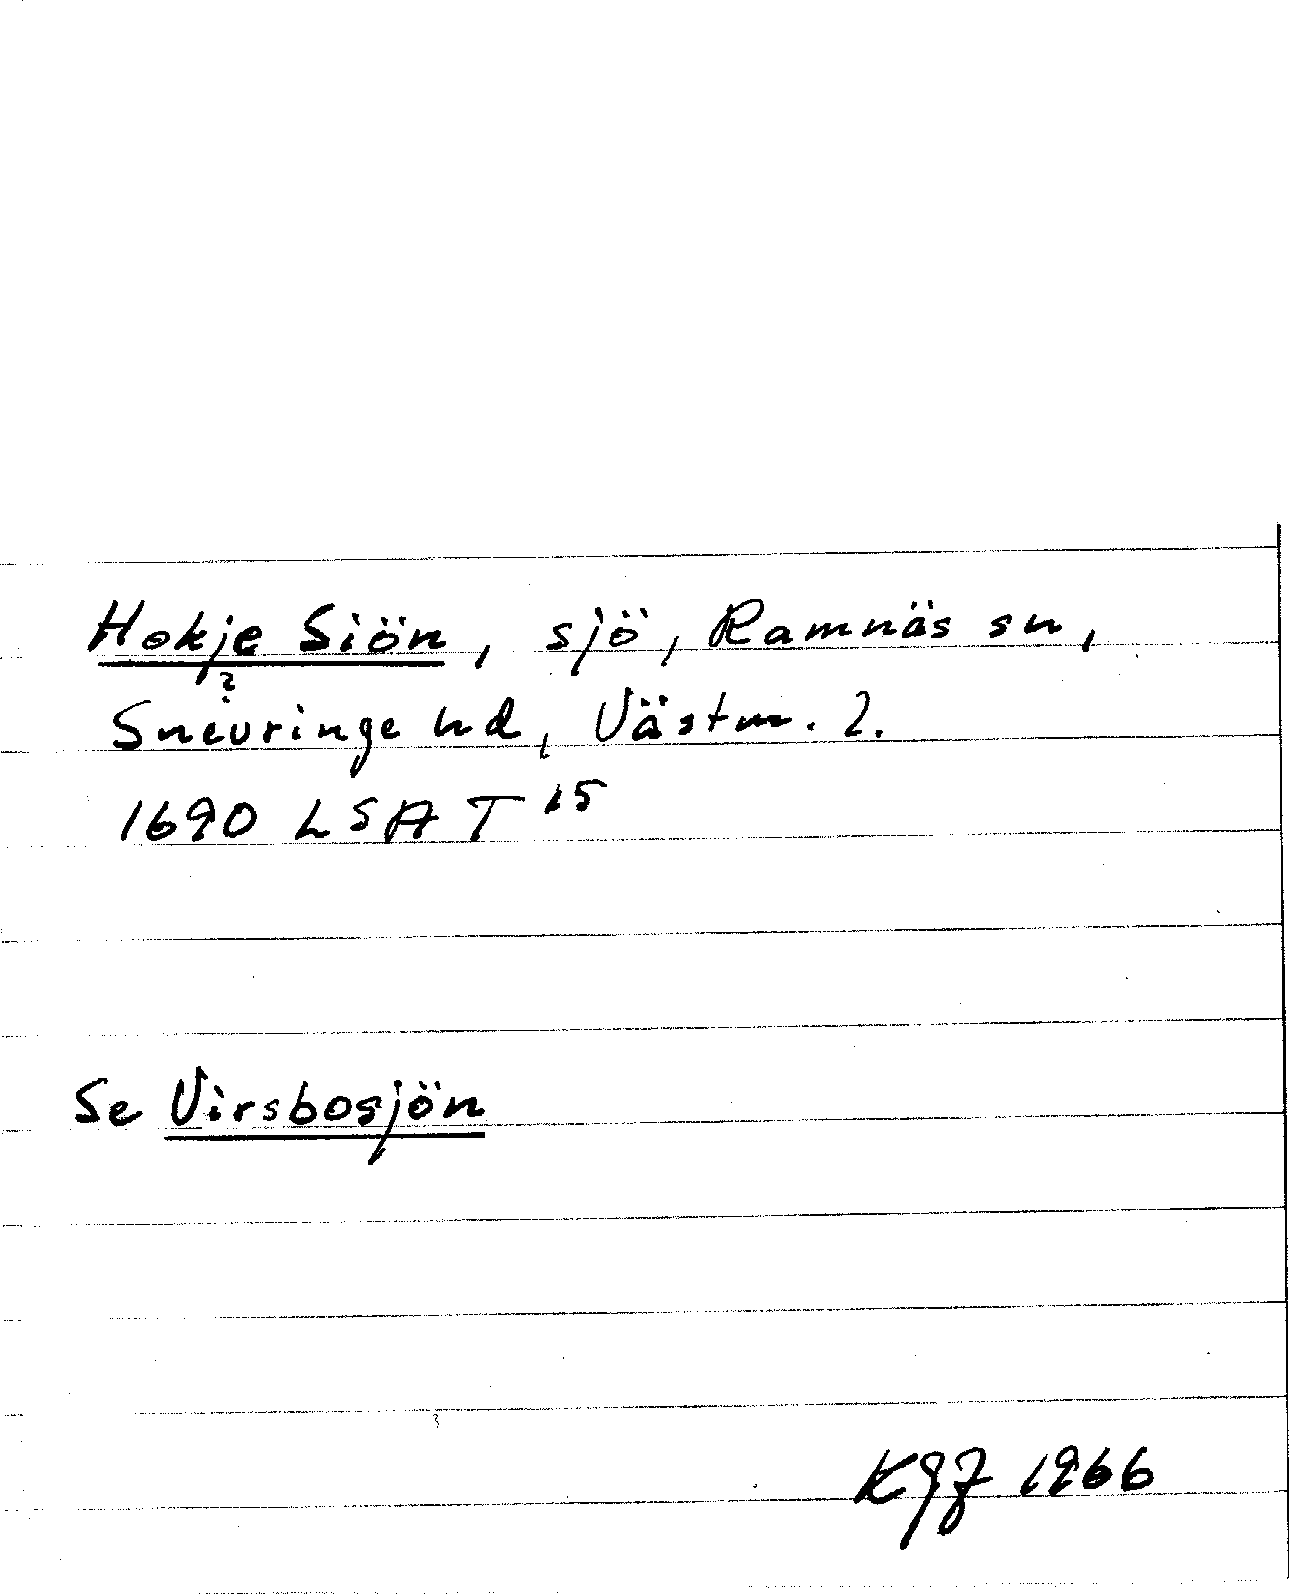 Hokje Siön, sjö, Ramnäs sn,
?
Snevringe hd, Västm. l.
1690 LSA T 15
Se Virsbosjön
KGJ 1966